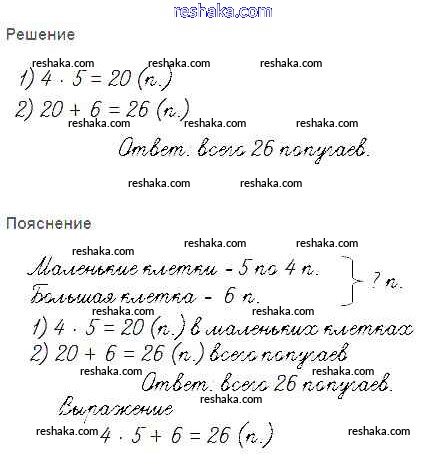 reshaka.com
Решение
reshaka.com reshaka.com reshaka.com
1) 4 · 5 = 20 (п.)
2) 20 + 6 = 26 (п.)
reshaka.com reshaka.com reshaka.com
Ответ: всего 26 попугаев.
reshaka.com reshaka.com
Пояснение
reshaka.com
reshaka.com reshaka.com
Маленькие клетки - 5 по 4 п.
Большая клетка - 6 п.
? п.
reshaka.com reshaka.com reshaka.com
1) 4 · 5 = 20 (п.) в маленьких клетках
2) 20 + 6 = 26 (п.) всего попугаев
reshaka.com reshaka.com reshaka.com
Ответ: всего 26 попугаев.
reshaka.com
Выражение
reshaka.com reshaka.com
4 · 5 + 6 = 26 (п.)
reshaka.com